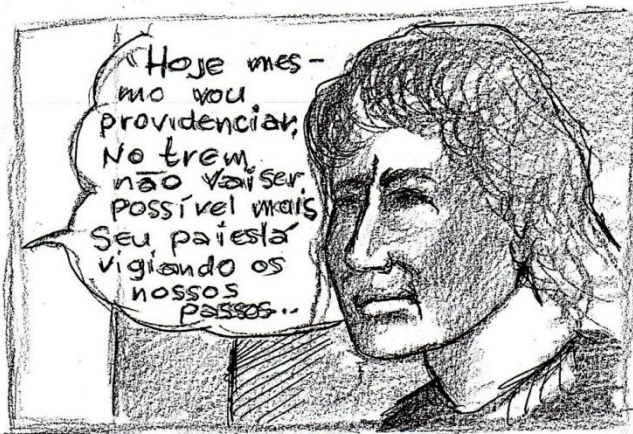 "Hoje mes-
mo vou
providenciar,
No trem
não vai ser
possível mais
Seu pai está
vigiando os
nossos
passos..